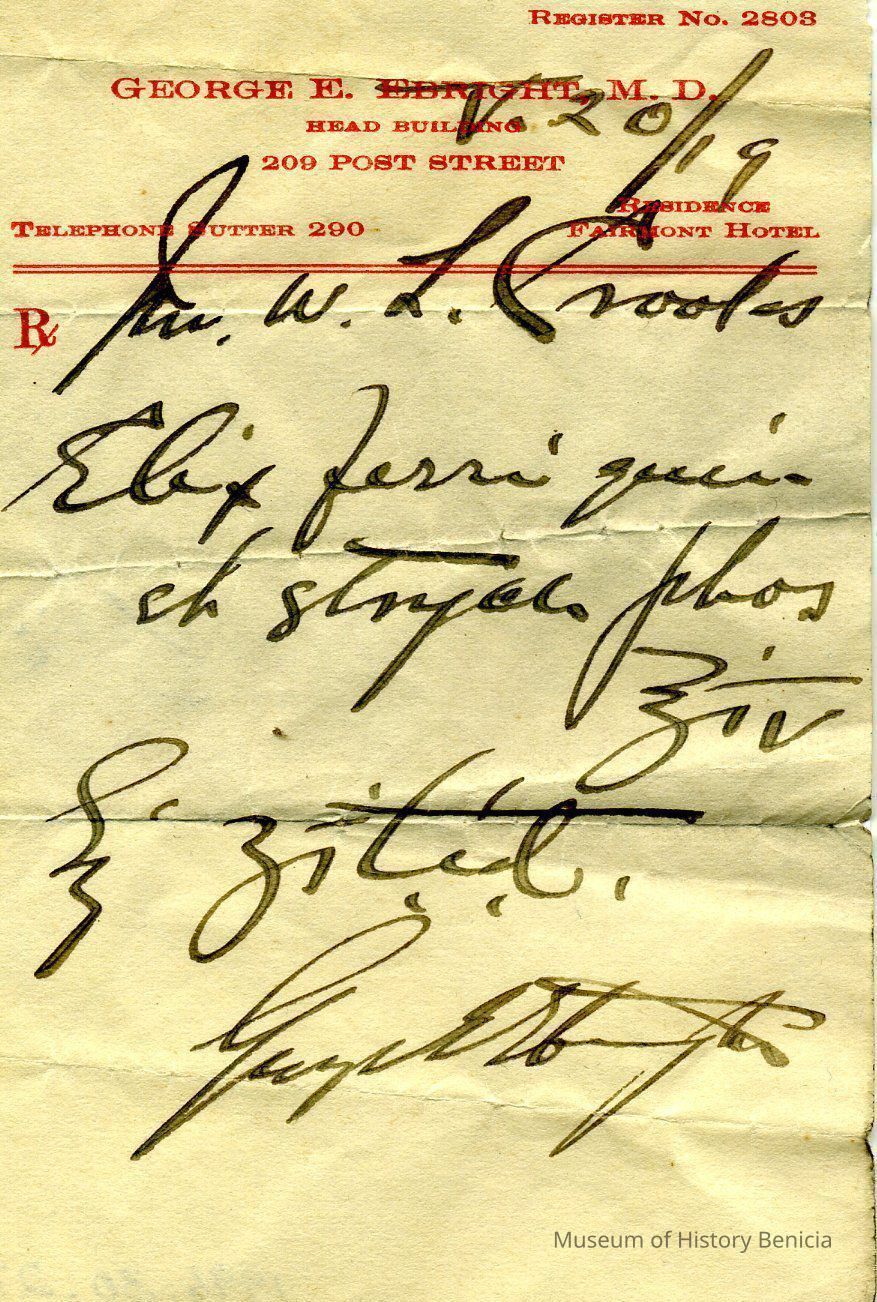 REGISTER NO. 2803
GEORGE E. EBRIGHT, M. D.
V. 20/19
HEAD BUILDING
209 POST STREET
RESIDENCE
TELEPHONE SUTTER 290 FAIRMONT HOTEL
℞ W. L. Crooks
Elix ferri quin
et strych phos
℥ iv
ʒi t.i.d.
George E Ebright
Museum of History Benicia